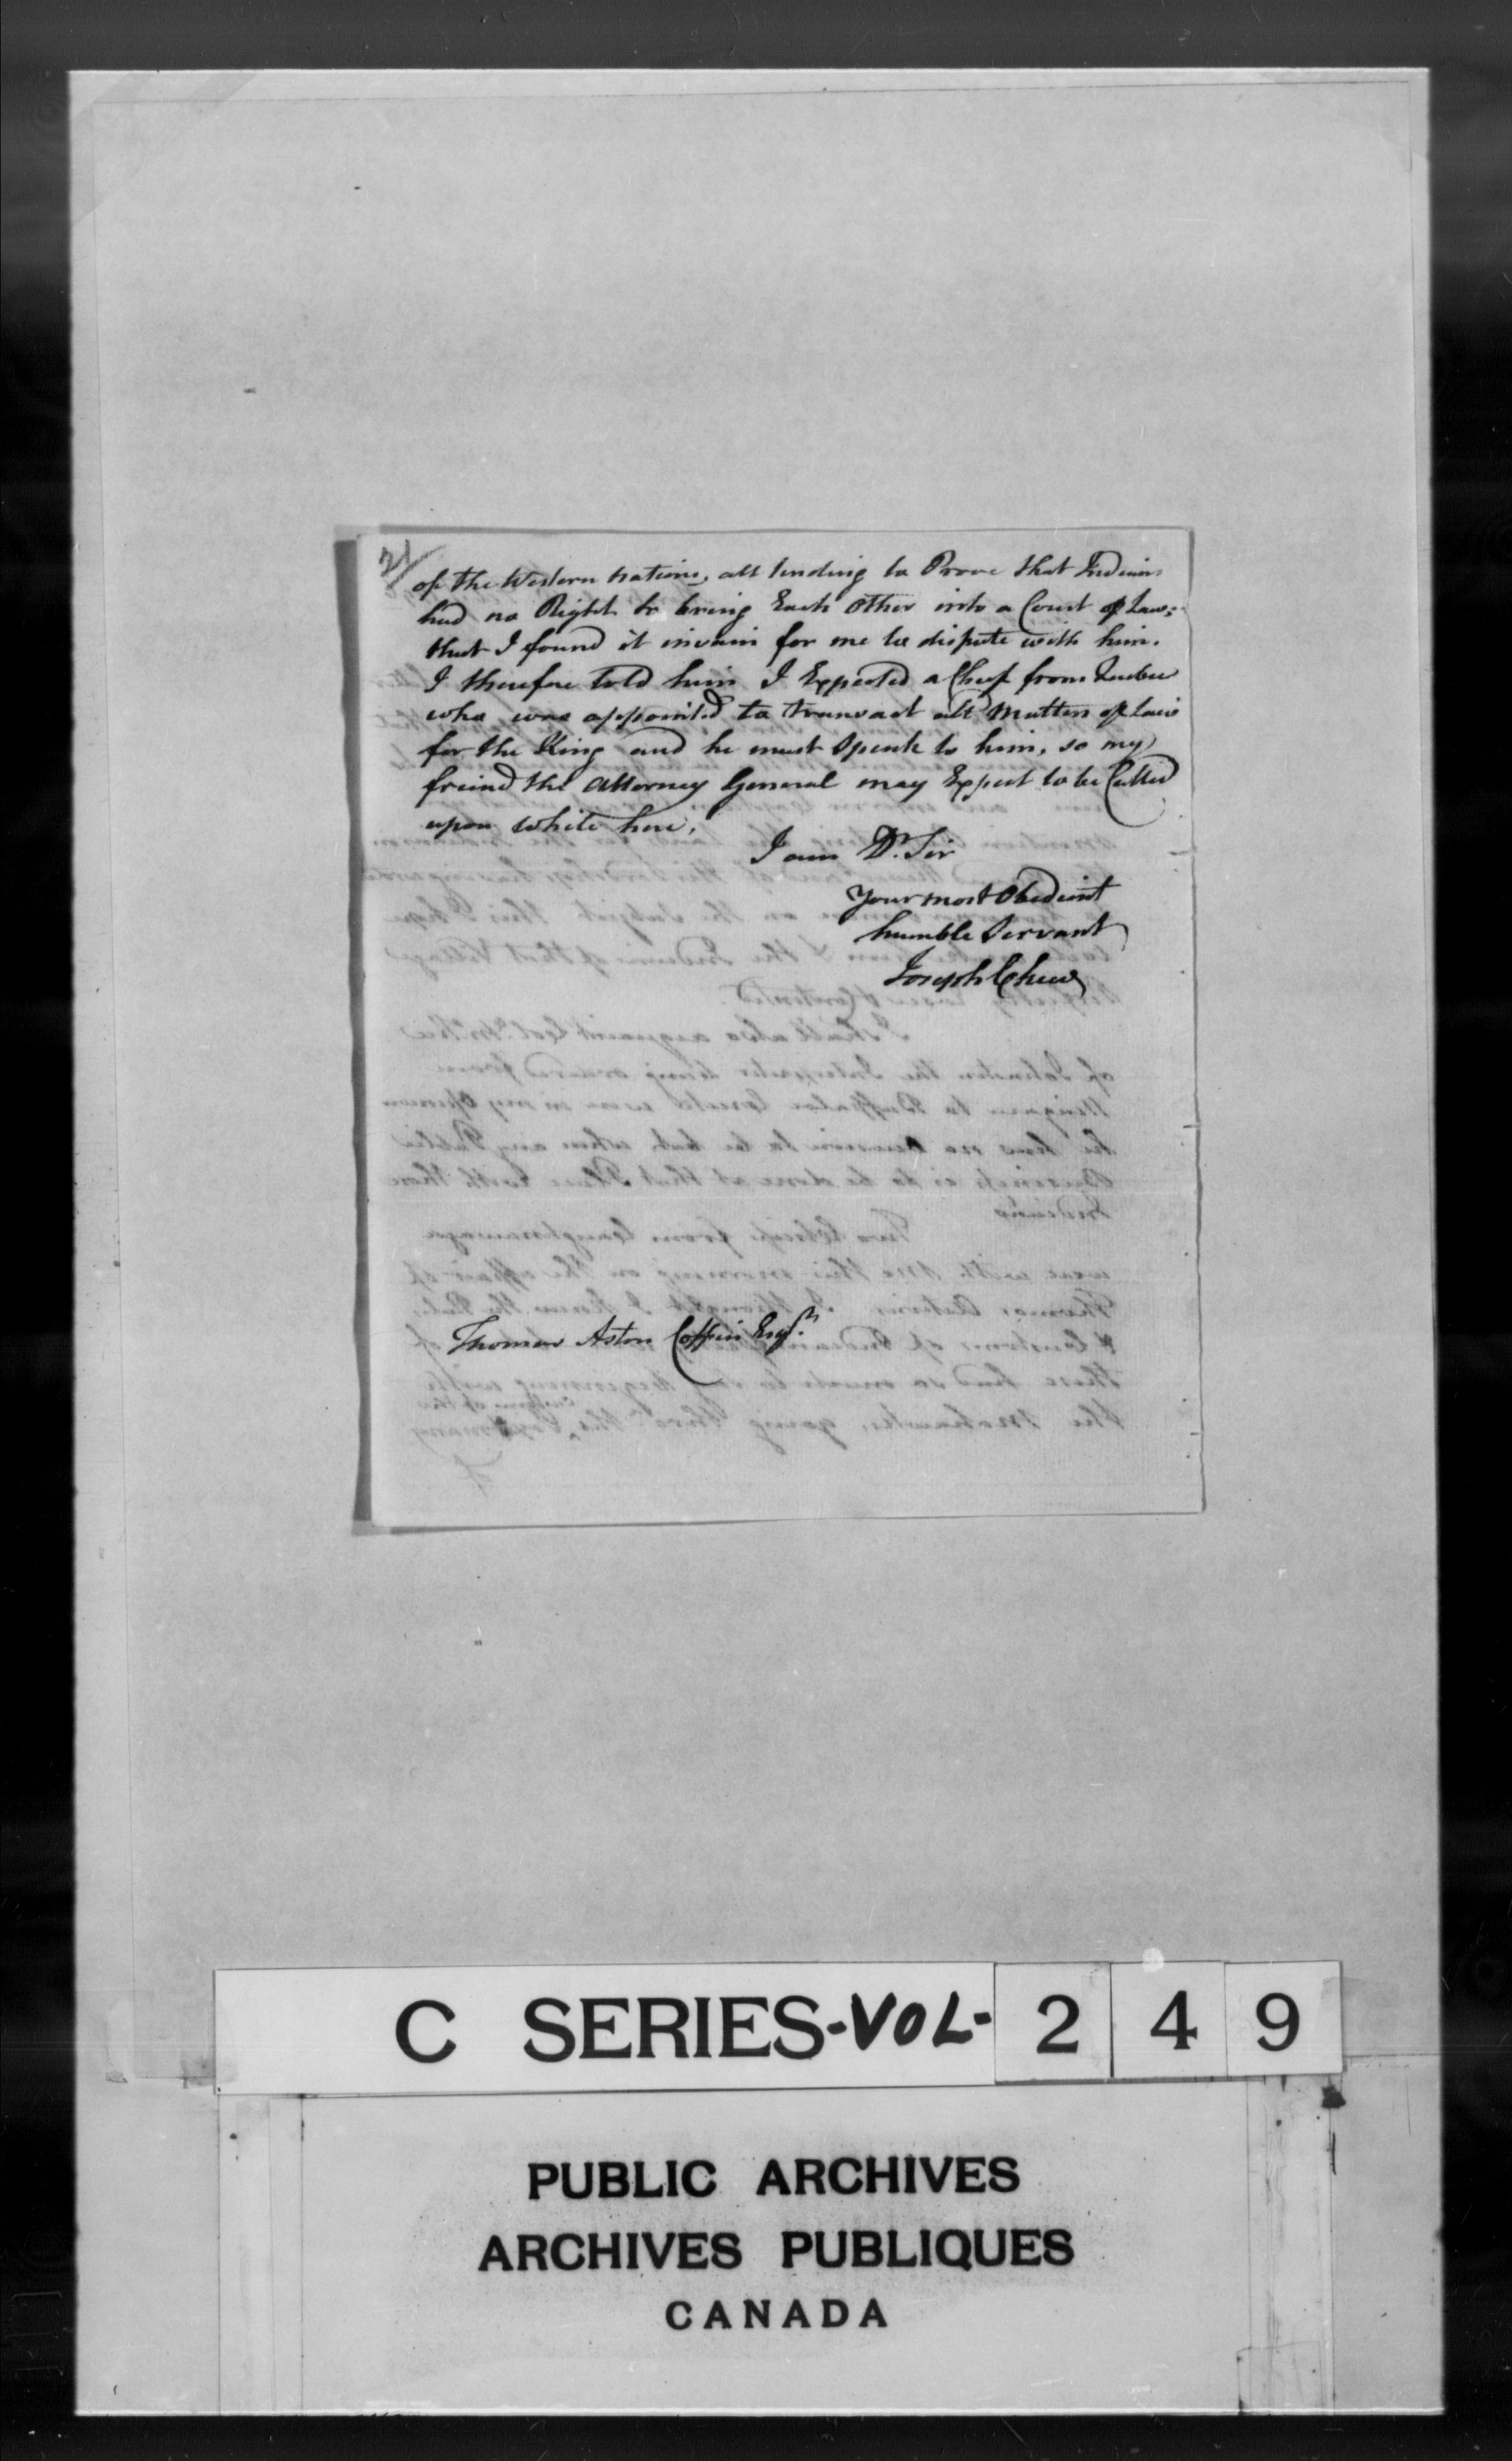 2/
of the Western nations, all tending to Prove that Indians
had no Right to bring Each Other into a Court of Law;
that I found it invain for me to dispute with him.
I therefore told him I Expected a Cheif from Quebec
who was appointed to transact all Matters of Law
for the King and he must Speak to him, so my
freind the Attorney General may Expect to be Called
upon while here,
I am Dr. Sir
Your most Obedient
humble Servant
Joseph Chew
Thomas Aston Coffin Esqr.
C SERIES-VOL- 2 4 9
PUBLIC ARCHIVES
ARCHIVES PUBLIQUES
CANADA